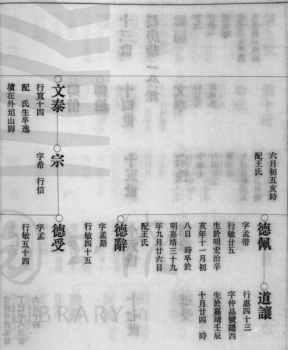 六月初五亥時
配王氏
德佩
字孟帶
行敏廿五
生於明宏治辛
亥年十一月初
八日 時卒於
明嘉靖三十九
年九月廿六日
配王氏
道讓
行惠四十三
字仲品號霞西
生於嘉靖壬辰
十月廿四 時
德辭
字孟語
行敏四十五
文泰
行寬十四
配 氏生卒逸
墳在外坦山脚
宗
字希 行信
德受
字孟
行敏五十四
LIBRARY